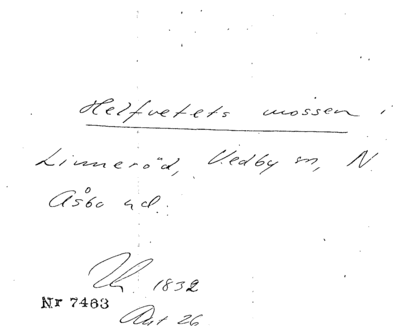 Helfvetets mossen i
Linneröd, Vedby sn, N
Åsbo hd.
1832
Nr 7463
Akt 26